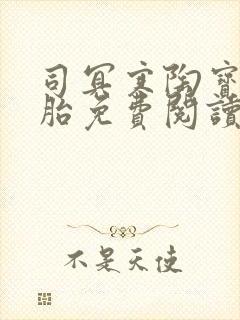 司冥寒陶寶
胎免費閱讀
不是天使